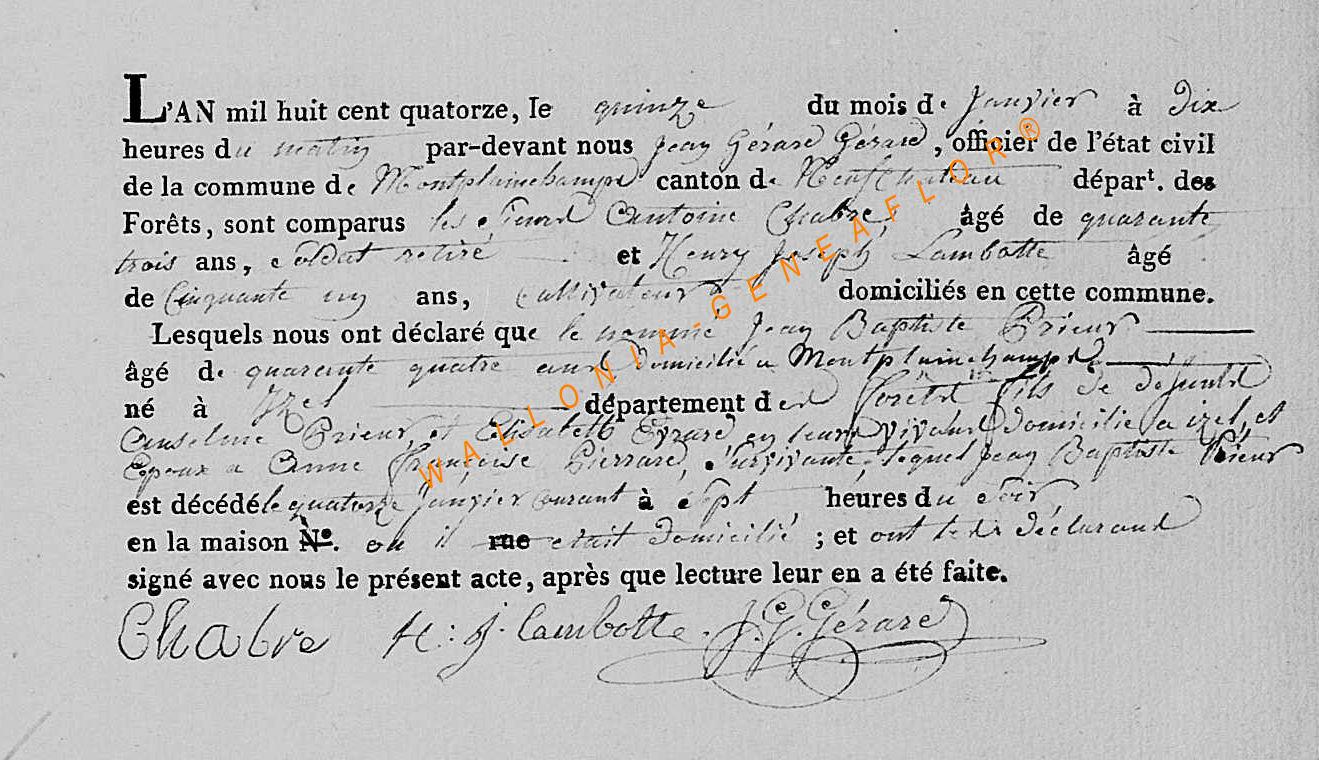 L'AN mil huit cent quatorze, le quinze du mois de Janvier à Dix
heures du matin par-devant nous Jean Gérard Gérard, officier de l'état civil
de la commune de Montplainchamps canton de Neufchateauépart. des
Forêts, sont comparus les Sieurs Antoine Chabre, âgé de quarante
trois ans, soldat retiré et Henry Joseph Lambotte âgé
de Cinquante un ans, Cultivateur domiciliés en cette commune.
Lesquels nous ont déclaré que le nommé Jean Baptiste Prieur
âgé de quarante quatre ans domicilié a Montplainchamps
né à Izel département des Forêts fils de defunts
Anselme Prieur, et Elisabeth Evrard, en leurs vivans domicilié a izel, et
Epoux a Anne Françoise Pierrard, Survivante, lequel Jean Baptiste Prieur
est décédé le quatorze Janvier courant à Sept heures du Soir
en la maison N°. ou il rue etait domicilié ; et ont les déclarans
signé avec nous le présent acte, après que lecture leur en a été faite.
Chabre H: J. Lambotte. J. G. Gérard
WALLONIA-GENEAFLOR®